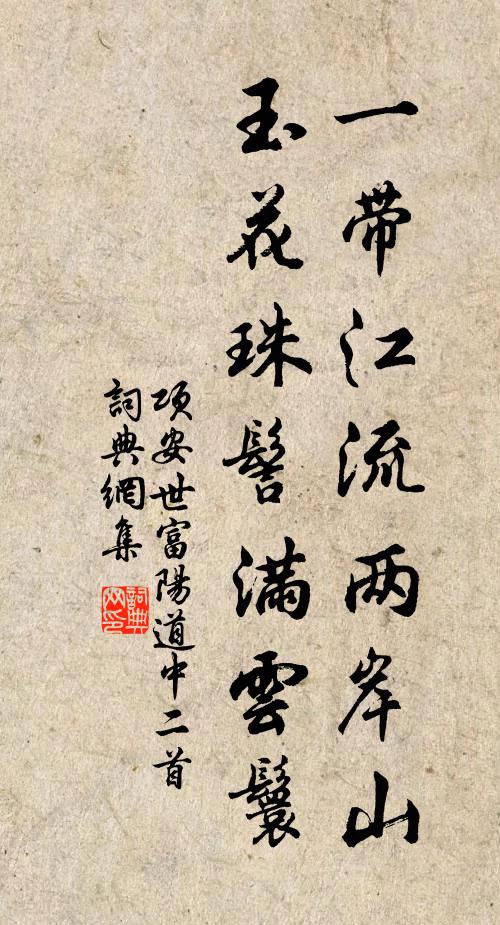 一带江流两岸山
玉花珠髻滿雲鬟
項安世富陽道中二首
詞典網集
詞典网印